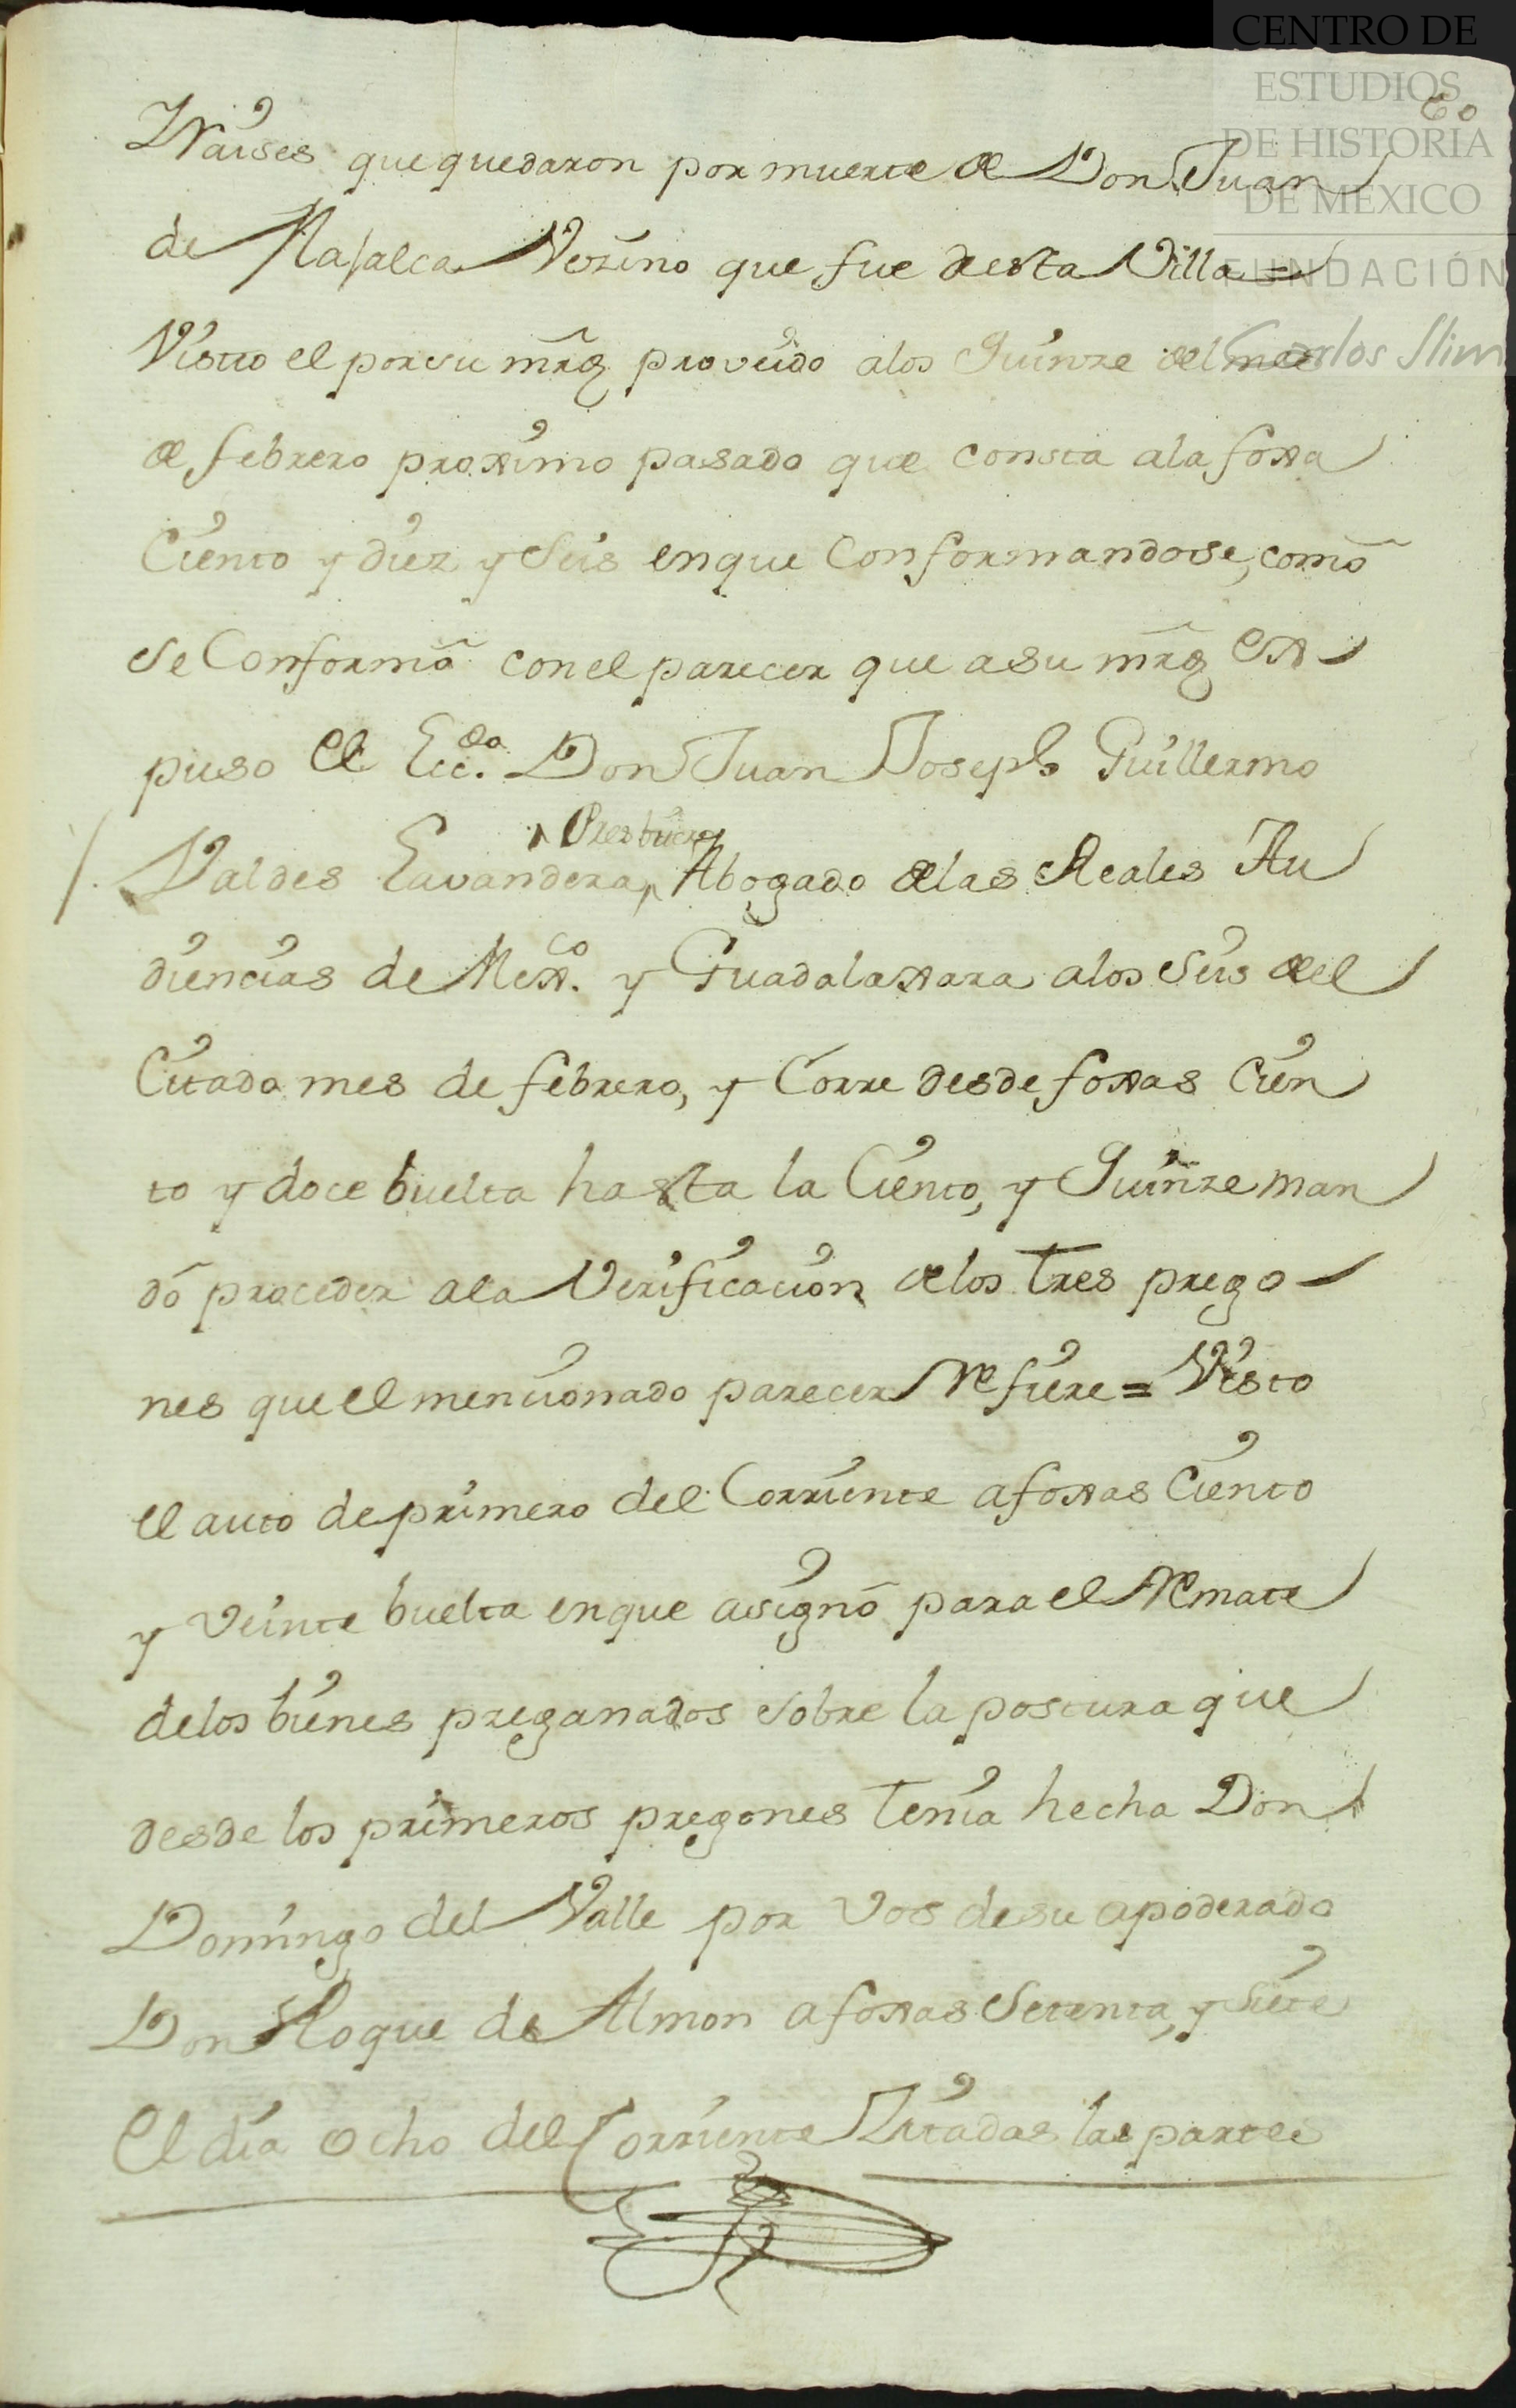 CENTRO DE
ESTUDIOS
DE HISTORIA
DE MÉXICO
FUNDACIÓN
Carlos Slim
60
Naises que quedaron por muerte de Don Juan
de Vecino que fue desta Villa =
Visto el por su mrd proveido alos Quinze del mes
de febrero proximo pasado que consta ala foxa
Ciento y diez y Seis enque Conformandose, como
se Conformó conel parecer que a su mrd ex-
puso el Licdo. Don Juan Joseph Guillermo
Presbitero
Valdes Lavandera, Abogado delas Reales Au
diencias de Mexco. y Guadalaxara alos Seis del
Citado mes de febrero, y Corre desde foxas Cien
to y doce buelta hasta la Ciento, y Quinze man
dó proceder ala Verificacion delos tres prego-
nes que el mencionado parecer Refiere = Visto
el auto de primero del Corriente afoxas Ciento
y veinte buelta enque asignó para el Remate
delos bienes preganados sobre la postura que
desde los primeros pregones tenia hecha Don
Domingo del Valle por vos desu apoderado
Don Roque de Almon afoxas Setenta, y Siete
El dia ocho del Corriente Zitadas las partes